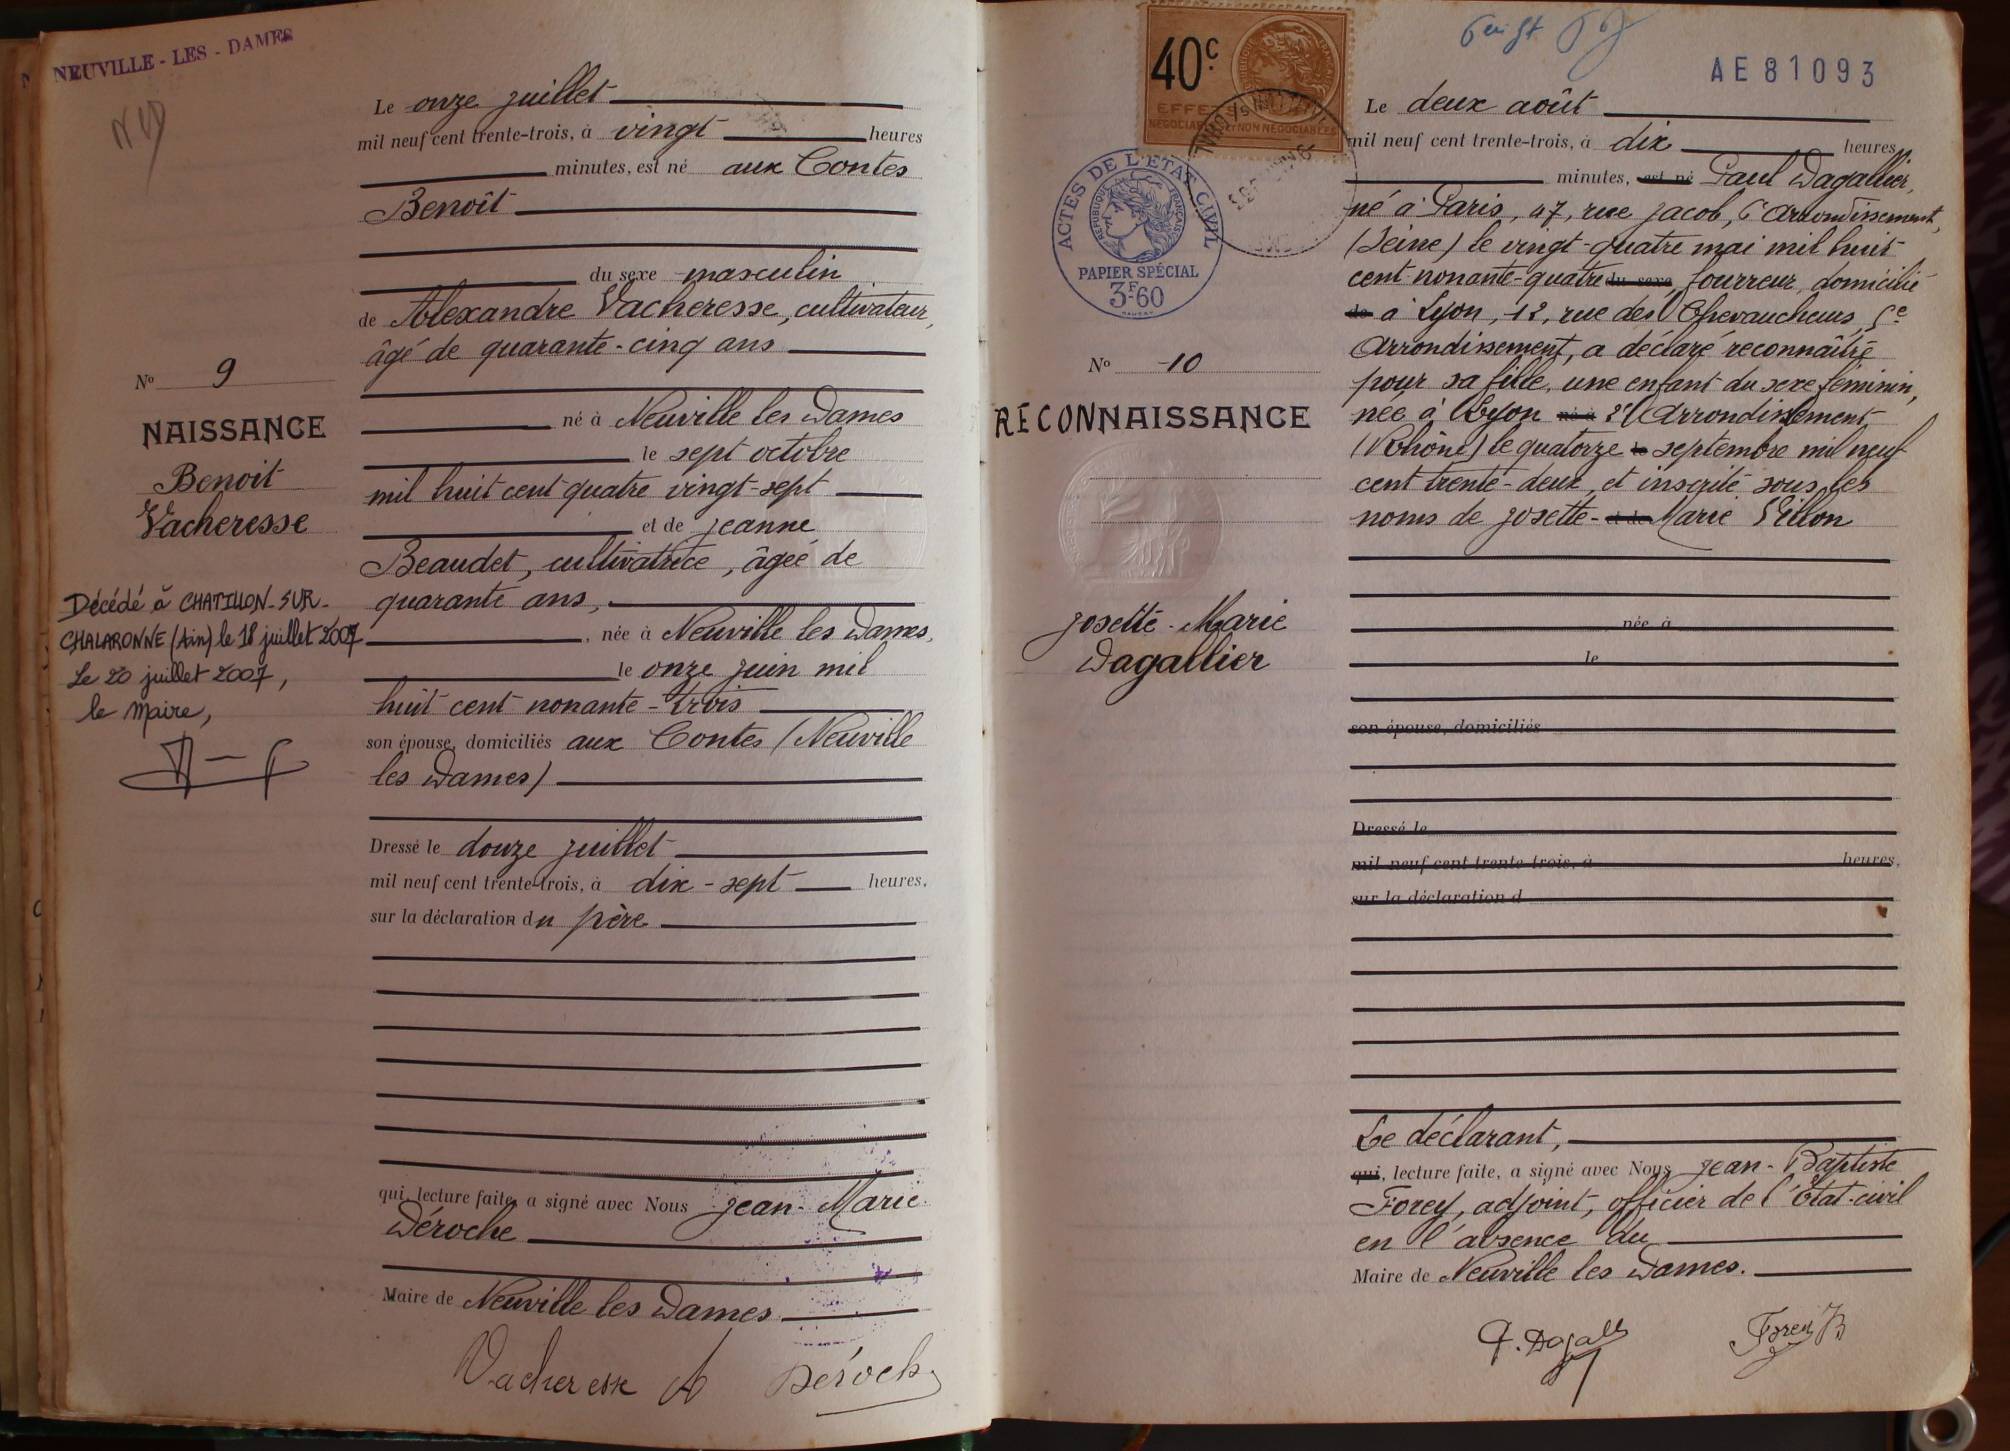 NEUVILLE - LES - DAMES
Le onze juillet
mil neuf cent trente-trois, à vingt heures
minutes, est né aux Contes
Benoît
du sexe masculin
de Alexandre Vacheresse, cultivateur,
âgé de quarante-cinq ans
né à Neuville les Dames
le sept octobre
mil huit cent quatre vingt-sept
et de Jeanne
Beaudet, cultivatrice, âgée de
quarante ans,
, née à Neuville les Dames,
le onze juin mil
huit cent nonante-trois
son épouse, domiciliés aux Contes (Neuville
les Dames)
Dressé le douze juillet
mil neuf cent trente-trois, à dix-sept heures.
sur la déclaration du père
qui, lecture faite, a signé avec Nous Jean-Marie
Déroche
Maire de Neuville les Dames.
Vacheresse A Déroche
No 9
NAISSANCE
Benoit
Vacheresse
Décédé à CHATILLON-SUR-
CHALARONNE (Ain) le 18 juillet 2007
Le 20 juillet 2007,
le Maire,
40c.
EFFETS
NÉGOCIABLES NON NÉGOCIABLES
ACTES DE L'ÉTAT CIVIL
RÉPUBLIQUE FRANÇAISE
PAPIER SPÉCIAL
3F.60
AE 81093
No 10
RECONNAISSANCE
Josette-Marie
Dagallier
Le deux août
mil neuf cent trente-trois, à dix heures
minutes, est né Paul Dagallier,
né à Paris, 47, rue Jacob, 6e Arrondissement,
(Seine) le vingt-quatre mai mil huit
cent nonante-quatre du sexe, fourreur, domicilié
de à Lyon, 12, rue des Chevaucheurs, 5e
Arrondissement, a déclaré reconnaître
pour sa fille, une enfant du sexe féminin,
née à Lyon né à 2e Arrondissement
(Rhône) le quatorze le septembre mil neuf
cent trente-deux, et inscrite sous les
noms de Josette- et de Marie
née à
le
son épouse, domiciliés
Dressé le
mil neuf cent trente-trois, à heures,
sur la déclaration d
Le déclarant,
qui, lecture faite, a signé avec Nous Jean-Baptiste
Forey, adjoint, officier de l'État-civil
en l'absence du
Maire de Neuville les Dames.
P. Dagall Forey JB